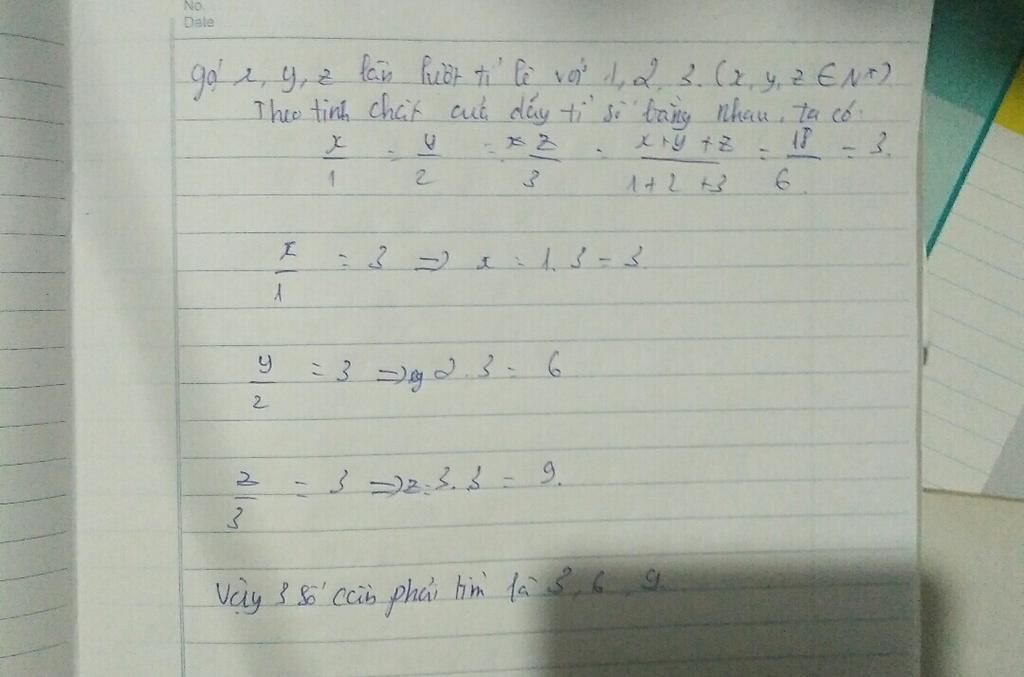 No.
Date
gọi x, y, z lần lượt tỉ lệ với 1, 2, 3. (x, y, z ∈ N*)
Theo tính chất của dãy tỉ số bằng nhau, ta có
x/1 = y/2 = z/3 = x+y+z/1+2+3 = 18/6 = 3.
x/1 = 3 => x = 1.3 = 3.
y/2 = 3 => y 2.3 = 6
z/3 = 3 => z = 3.3 = 9.
Vậy 3 số cần phải tìm là 3, 6, 9.